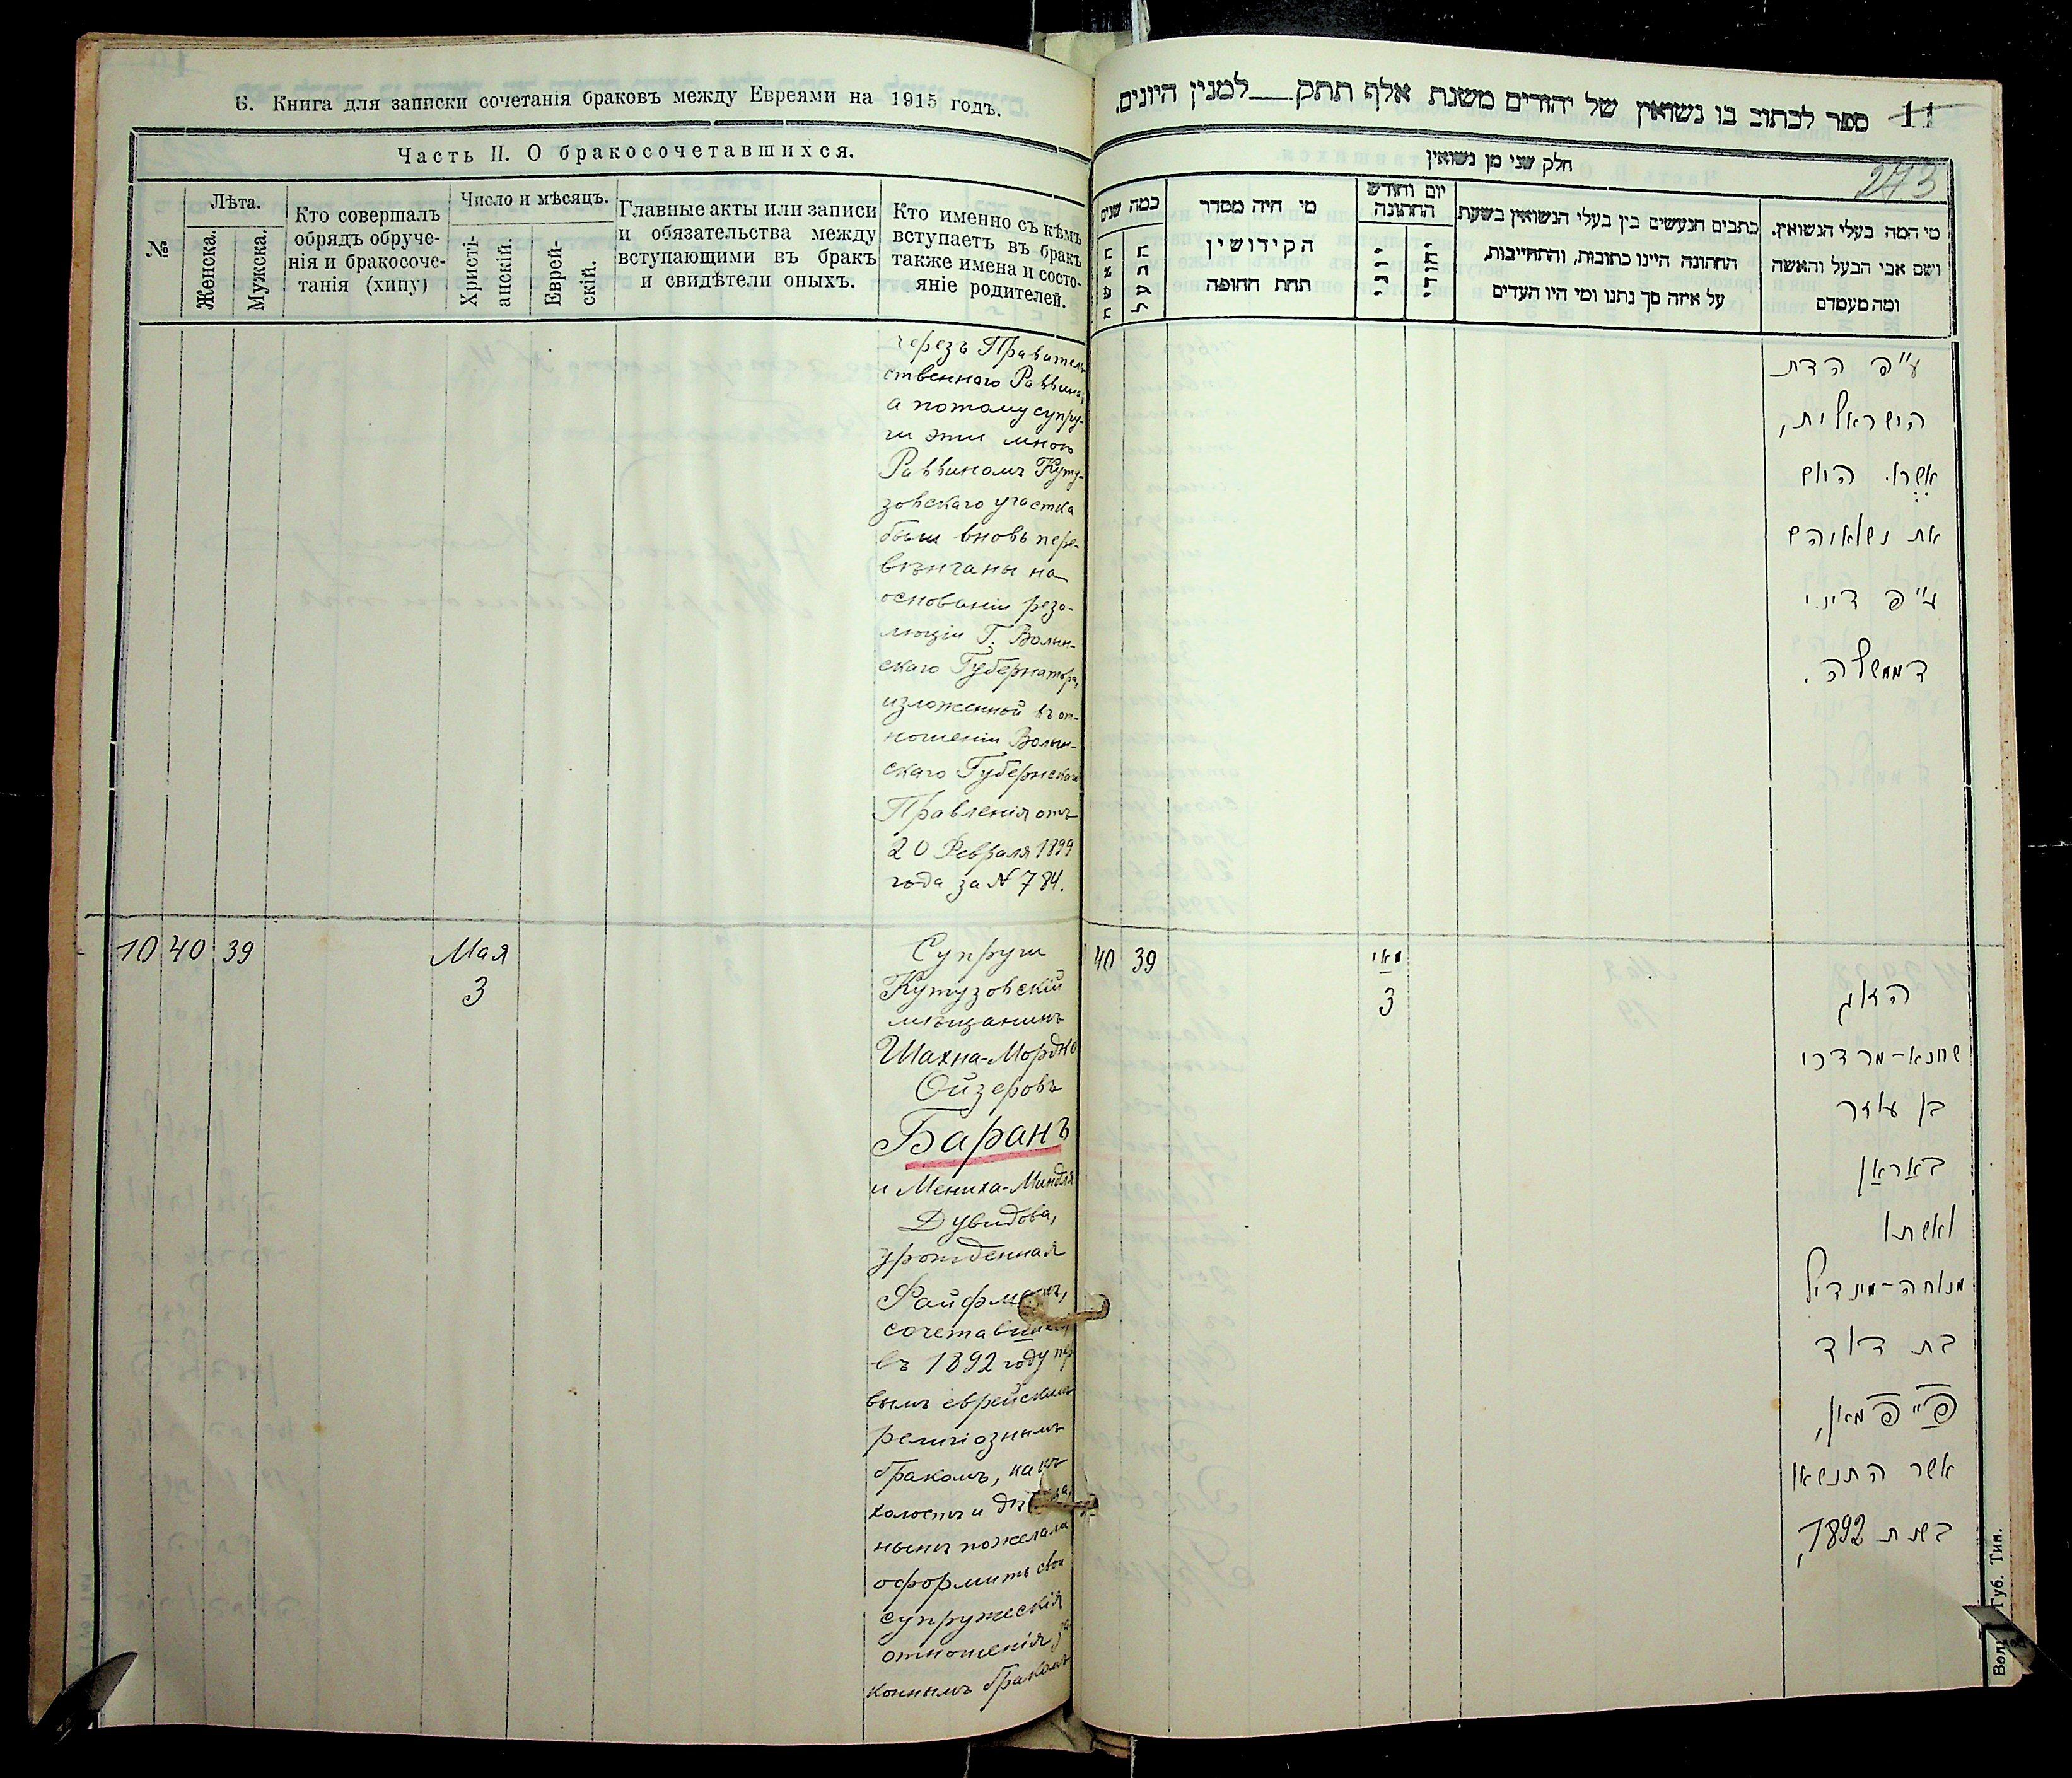 6. Книга для записки сочетанія браковъ между Евреями на 1915 годъ.
Часть II. О бракосочетавшихся.
№
Лѣта.
Женска.
Мужска.
Кто совершалъ
обрядъ обруче-
нія и бракосоче-
танія (хипу)
Число и мѣсяцъ.
Христі-
анскій.
Еврей-
скій.
Главные акты или записи
и обязательства между
вступающими въ бракъ
и свидѣтели оныхъ.
Кто именно съ кѣмъ
вступаетъ въ бракъ
также имена и состо-
яніе родителей.
черезъ Правитель-
ственнаго Раввина,
а потому супру-
ги эти мною
Раввиномъ Куту-
зовскаго участка
были вновь пере-
вѣнчаны на
основаніи резо-
люціи Г. Волын-
скаго Губернатора,
изложенной въ от-
ношеніи Волын-
скаго Губернскаго
Правленія отъ
20 Февраля 1899
года за N 784.
10 40 39
Мая
3
Супруги
Кутузовскій
мѣщанинъ
Шахна-Мордко
Ойзеровъ
Баранъ
и Мениха-Миндля
Дувидова,
урожденная
Файфманъ,
сочетавшіеся
въ 1892 году пер
вымъ еврейскимъ
религіознымъ
бракомъ, какъ
холостъ и дѣвица,
нынѣ пожелали
оформить свои
супружескія
отношенія за
коннымъ бракомъ
ספר לכתוב בו נשואין של יהודים משנת אלף תתק___למנין היונים.
11
273
חלק שני מן נשואין
כמה שנים
האשה
הבעל
מי היה מסדר
הקידושין
תחת החופה
יום וחודש
החתונה
כתבים הנעשים בין בעלי הנשואין בשעת
החתונה היינו כתובות, והתחייבות,
על איזה סך נתנו ומי היו העדים
מי המה בעלי הנשואין.
ושם אבי הבעל והאשה
ומה מעמדם
ע"פ הדת
הישראלית,
אשרו היום
את נשואיהם
ע"פ דיני
הממשלה.
40 39
מאי
3
הזוג
שחנא-מרדכי
בן עוזר
באראן
ואשתו
מנוחה-מינדיל
בת דוד
פייפמאן,
אשר התנשאו
בשנת 1892,
Вол. Губ. Тип.